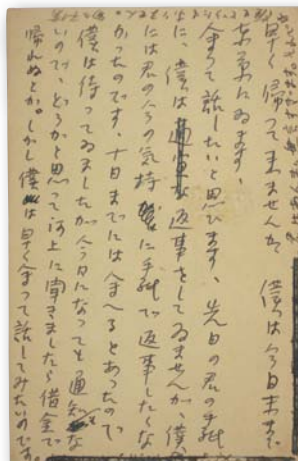 早く帰って来ませんか 僕は今日まで
東京にゐます、
会って話したいと思ひます、先日の君の手紙
に、僕は返事をしてゐませんが、僕
には君の今の気持に手紙で返事したくな
かったのです、十日までには会へるとあったので
僕は待ってゐましたが今日になっても通知がな
いので、どうかと思って河上に聞きましたら借金で
帰れぬとか。しかし僕は早く会って話してみたいのです。